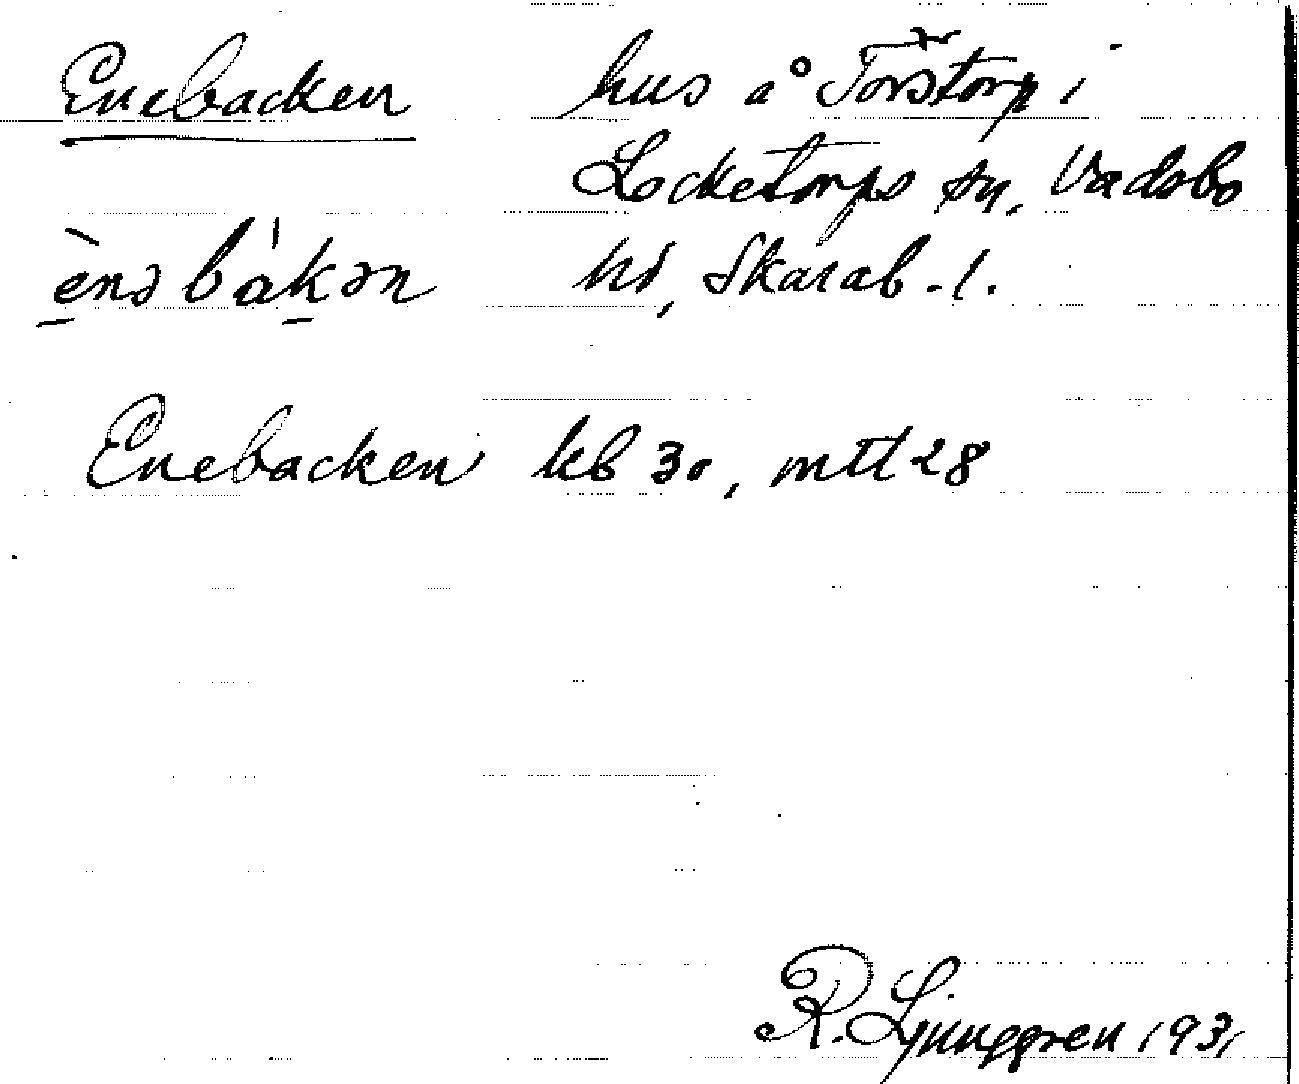 Enebacken hus å Torstorp i
Locketorps sn, Vadsbo
ènə bákən hd, Skarab. l.
Enebacken kb 30, mtl 28
R. Ljunggren 1931